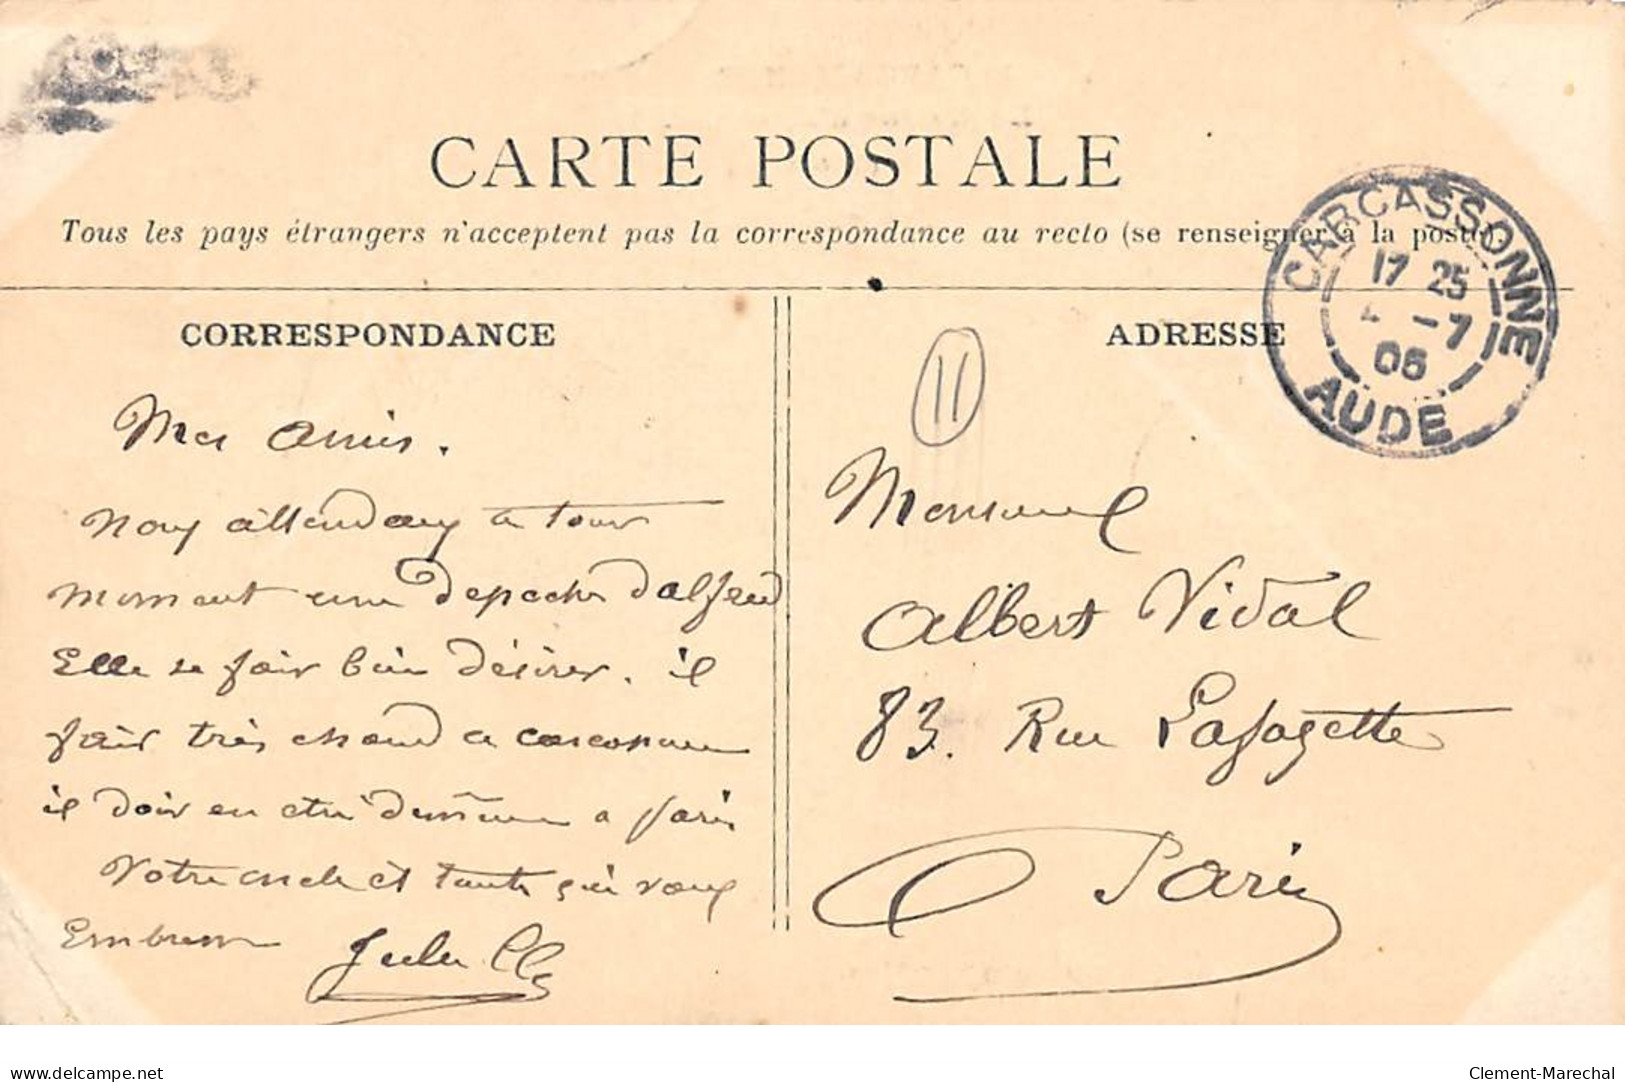 CARTE POSTALE
Tous les pays étrangers n'acceptent pas la correspondance au recto (se renseigner à la poste).
CARCASSONNE
17 25
4 -7
06
AUDE
CORRESPONDANCE
ADRESSE
11
Mes Amis.
Nous attendons a tous
moment une depeche d'alfred
Elle se fait bien désirer. il
fait très chaud a carcassonne
il doit en etre de même a paris
Votre oncle et tante qui vous
Embrasse
Jules
Monsieur
Albert Vidal
83. Rue Lafayette
Paris
delcampe.net
Clement-Marechal